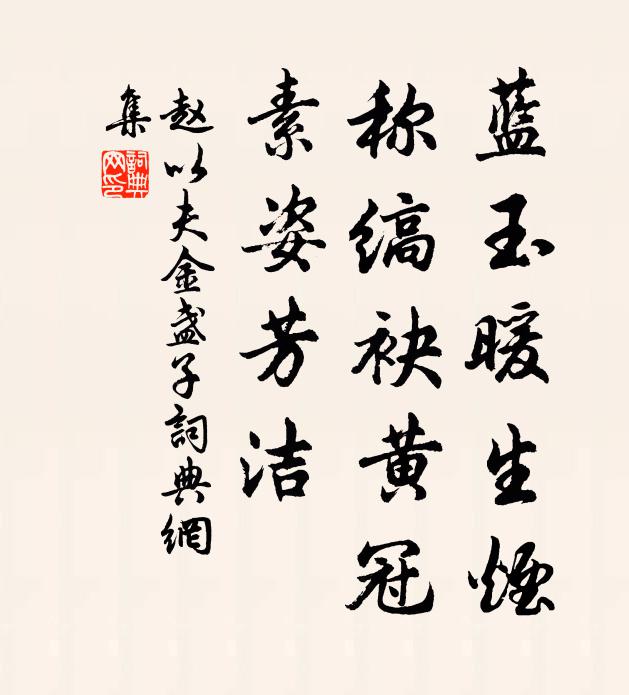 蓝玉暖生烟
称缟袂黄冠
素姿芳洁
赵以夫金盏子詞典網
集
詞典网印